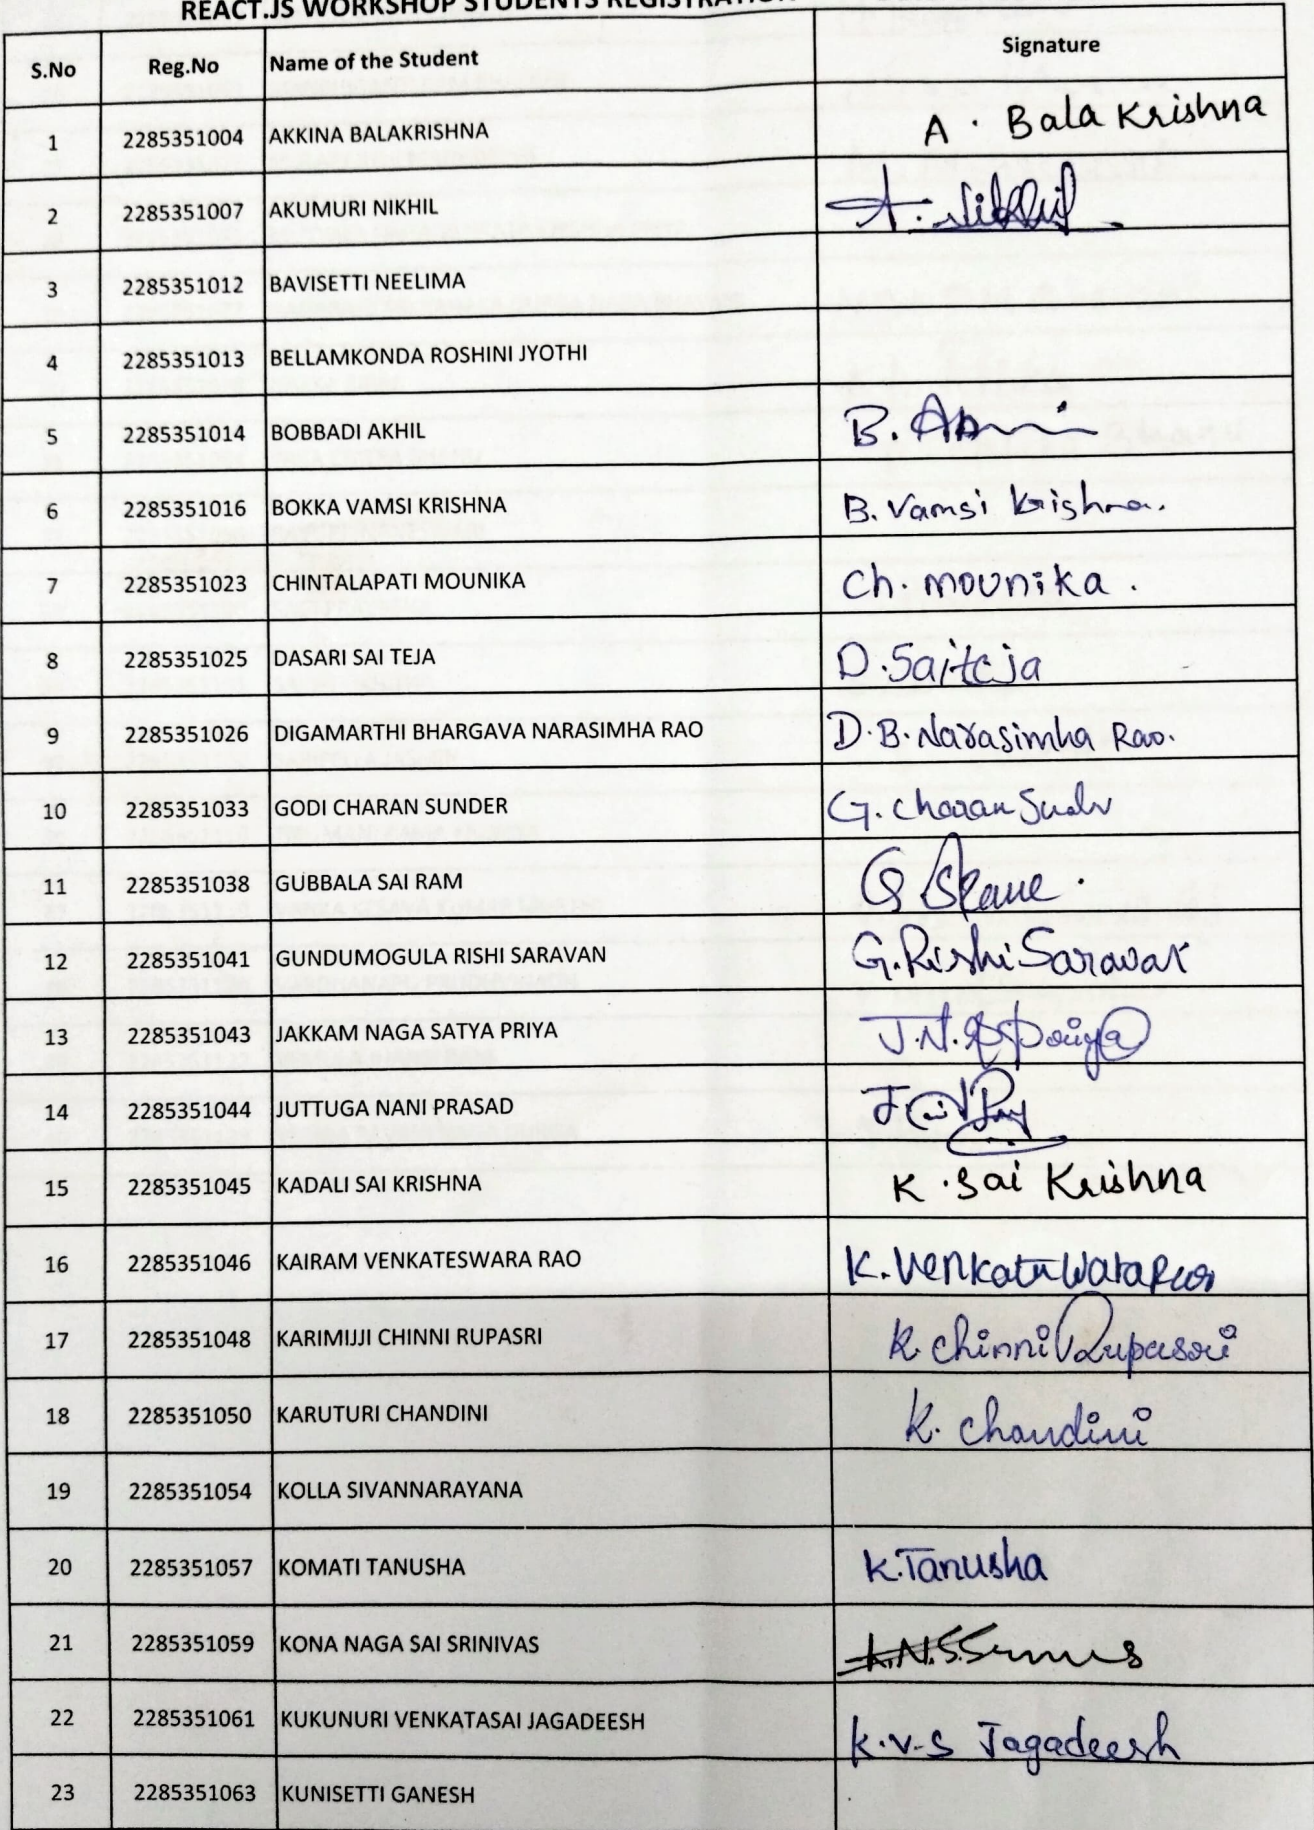 REACT.JS WORKSHOP STUDENTS REGISTRATION
S.No Reg.No Name of the Student Signature
1 2285351004 AKKINA BALAKRISHNA A. Bala Krishna
2 2285351007 AKUMURI NIKHIL A. Nikhil
3 2285351012 BAVISETTI NEELIMA
4 2285351013 BELLAMKONDA ROSHINI JYOTHI
5 2285351014 BOBBADI AKHIL B.
6 2285351016 BOKKA VAMSI KRISHNA B. Vamsi Krishna.
7 2285351023 CHINTALAPATI MOUNIKA Ch. mounika.
8 2285351025 DASARI SAI TEJA D. Saiteja
9 2285351026 DIGAMARTHI BHARGAVA NARASIMHA RAO D. B. Narasimha Rao.
10 2285351033 GODI CHARAN SUNDER G. Charan
11 2285351038 GUBBALA SAI RAM G
12 2285351041 GUNDUMOGULA RISHI SARAVAN G. Rishi Saravan
13 2285351043 JAKKAM NAGA SATYA PRIYA J.N.S Priya
14 2285351044 JUTTUGA NANI PRASAD
15 2285351045 KADALI SAI KRISHNA K. Sai Krishna
16 2285351046 KAIRAM VENKATESWARA RAO K. Venkateswara Rao
17 2285351048 KARIMIJJI CHINNI RUPASRI K. Chinni Rupasri
18 2285351050 KARUTURI CHANDINI K. Chandini
19 2285351054 KOLLA SIVANNARAYANA
20 2285351057 KOMATI TANUSHA K. Tanusha
21 2285351059 KONA NAGA SAI SRINIVAS K.N.S.Srinivas
22 2285351061 KUKUNURI VENKATASAI JAGADEESH K.V.S Jagadeesh
23 2285351063 KUNISETTI GANESH